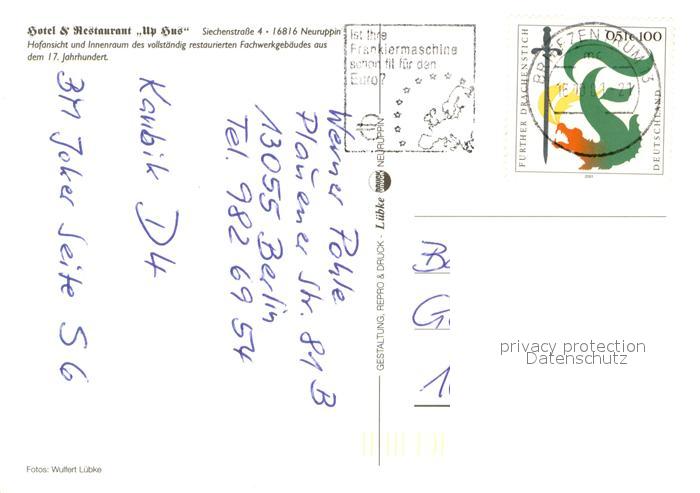 Hotel & Restaurant „Up Hus“ Siechenstraße 4 • 16816 Neuruppin
Hofansicht und Innenraum des vollständig restaurierten Fachwerkgebäudes aus
dem 17. Jahrhundert.
Ist Ihre
Frankiermaschine
schon fit für den
Euro?
BRIEFZENTRUM
0,51€ 100
FURTHER DRACHENSTICH
DEUTSCHLAND
2001
Werner Pohle
Plauener Str. 81 B
13055 Berlin
Tel. 982 69 54
D4
Joker Seite 56
GESTALTUNG, REPRO & DRUCK - Lübke DRUCK NEURUPPIN
privacy protection
Datenschutz
Fotos: Wulfert Lübke